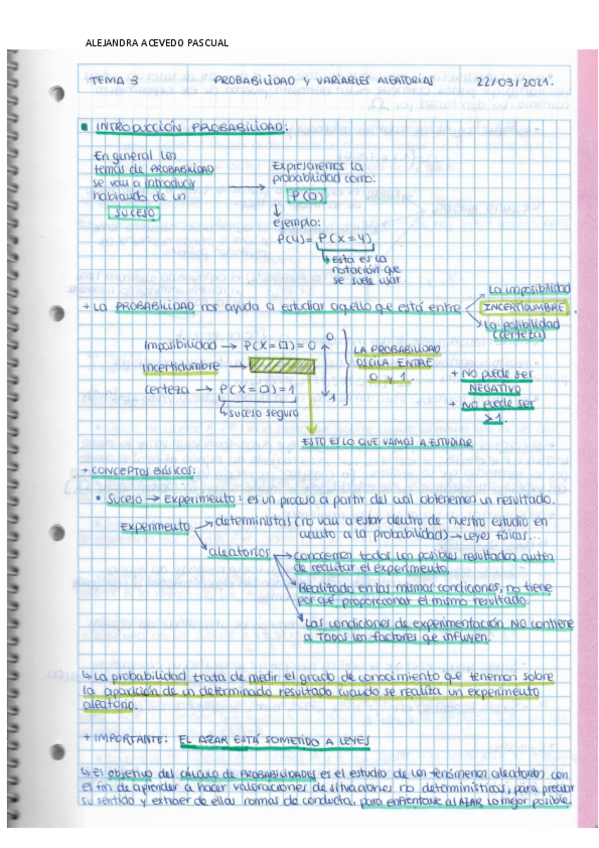 ALEJANDRA ACEVEDO PASCUAL
TEMA 3 PROBABILIDAD Y VARIABLES ALEATORIAS 22/03/2021.
INTRODUCCIÓN PROBABILIDAD:
En general los
temas de PROBABILIDAD
se van a introducir
hablando de un
SUCESO
Expresaremos la
probabilidad como:
P(□)
ejemplo:
P(4) = P(X=4)
Esta es la
notación que
se suele usar.
+ La PROBABILIDAD nos ayuda a estudiar aquello que está entre
La imposibilidad
INCERTIDUMBRE.
La posibilidad
(certeza)
imposibilidad → P(X=□)=0
incertidumbre →
certeza → P(X=□)=1
↳ suceso seguro
0
1
LA PROBABILIDAD
OSCILA ENTRE
0 y 1.
+ NO puede ser
NEGATIVO
+ NO puede ser
>1.
ESTO ES LO QUE VAMOS A ESTUDIAR
+ CONCEPTOS BÁSICOS:
• Suceso → Experimento: es un proceso a partir del cual obtenemos un resultado.
Experimento
deterministas (no van a estar dentro de nuestro estudio en
cuanto a la probabilidad) → Leyes físicas...
aleatorios
conocemos todos los posibles resultados antes
de realizar el experimento.
Realizado en las mismas condiciones, no tiene
por qué proporcionar el mismo resultado.
Las condiciones de experimentación NO contiene
a TODOS los factores que influyen.
↳ La probabilidad trata de medir el grado de conocimiento que tenemos sobre
la aparición de un determinado resultado cuando se realiza un experimento
aleatorio.
+ IMPORTANTE: EL AZAR ESTÁ SOMETIDO A LEYES
↳ El objetivo del CÁLCULO de PROBABILIDADES es el estudio de los fenómenos aleatorios con
el fin de aprender a hacer valoraciones de situaciones no determinísticas, para precisar
su sentido y extraer de ellas normas de conducta, para enfrentarse al AZAR lo mejor posible.